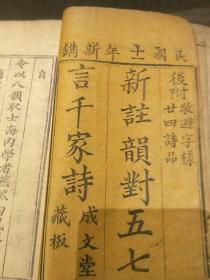 民國十一年新鐫
後附敬避字樣
廿四詩品
新註韻對五七
言千家詩
成文堂
藏板
自
令以八韻取士海內學者